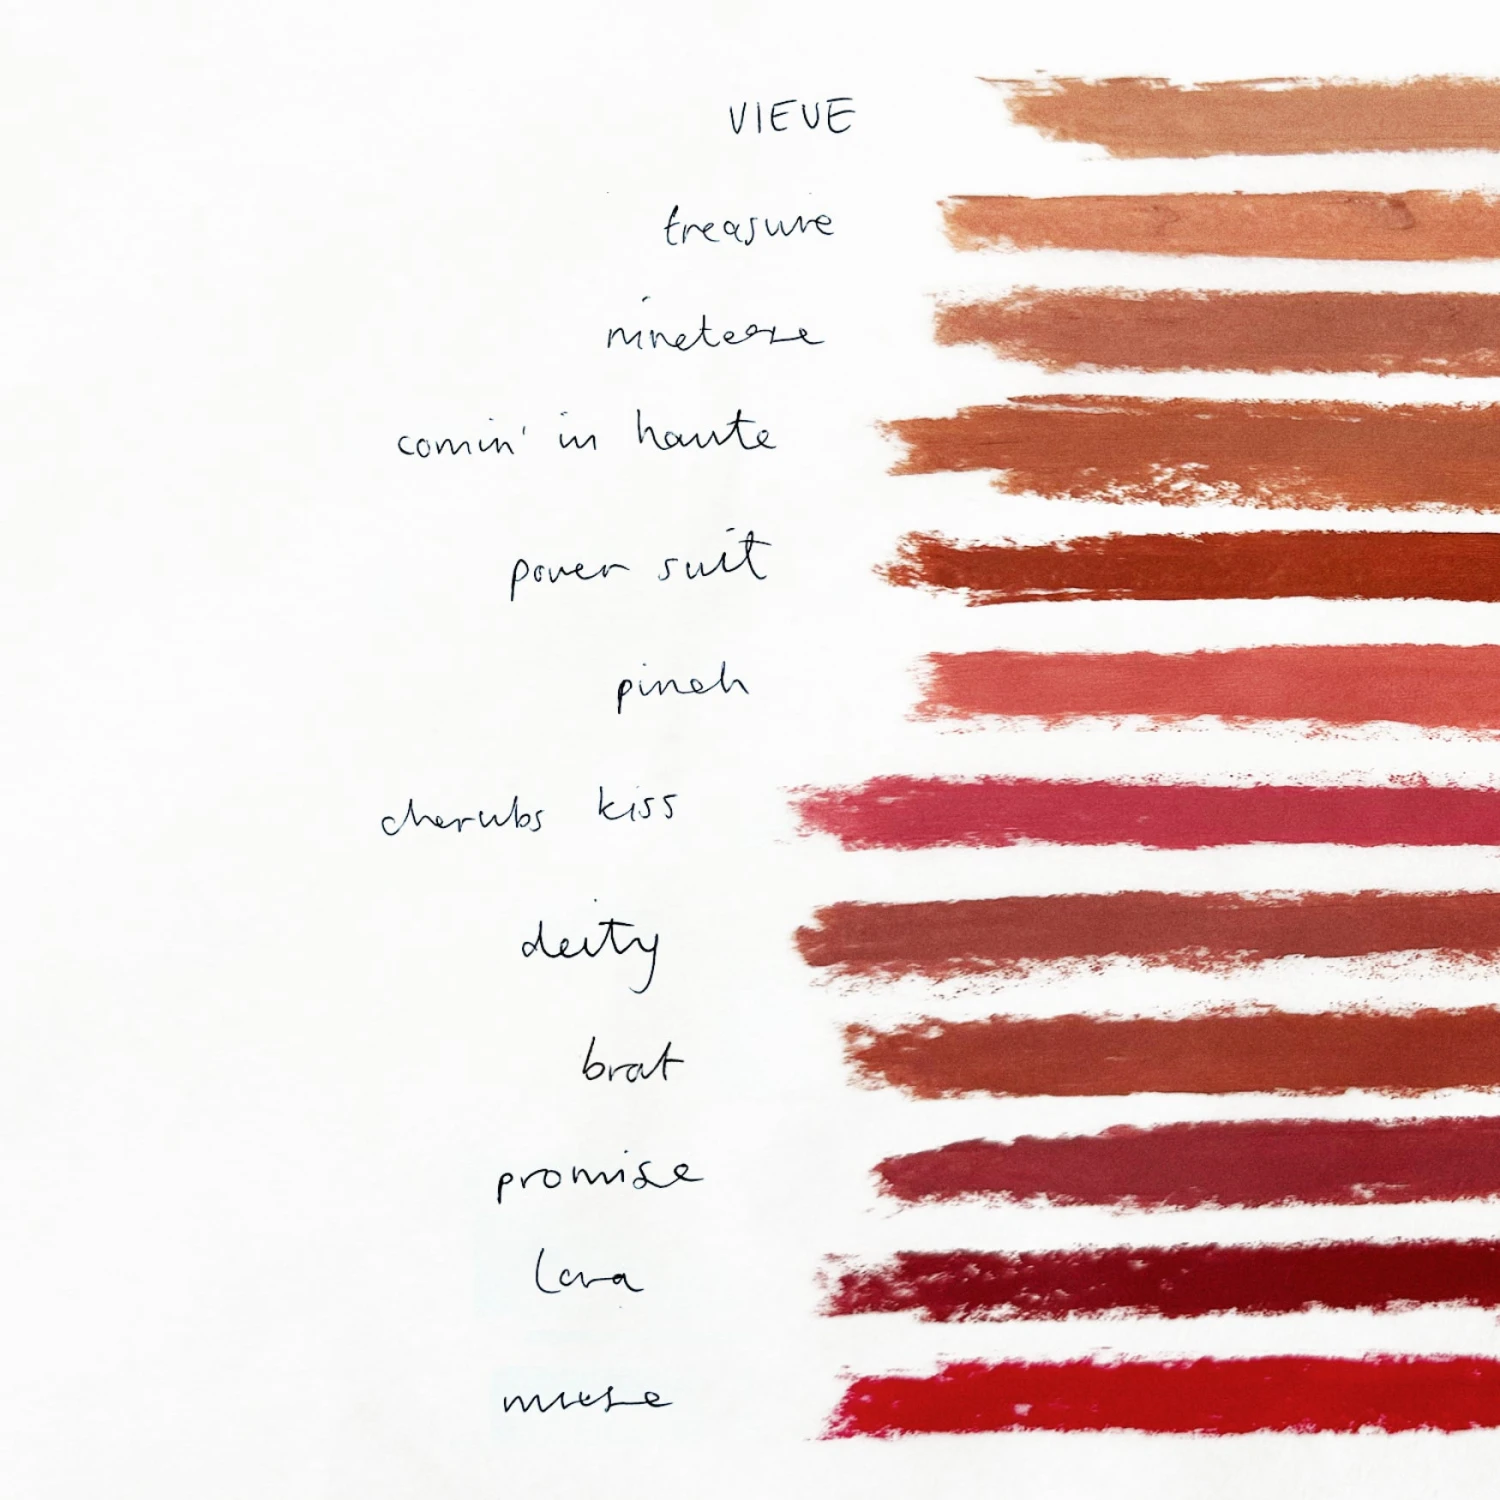 VIEVE
treasure
comin' in haute
power suit
pinch
cherubs kiss
deity
brat
promise
muse